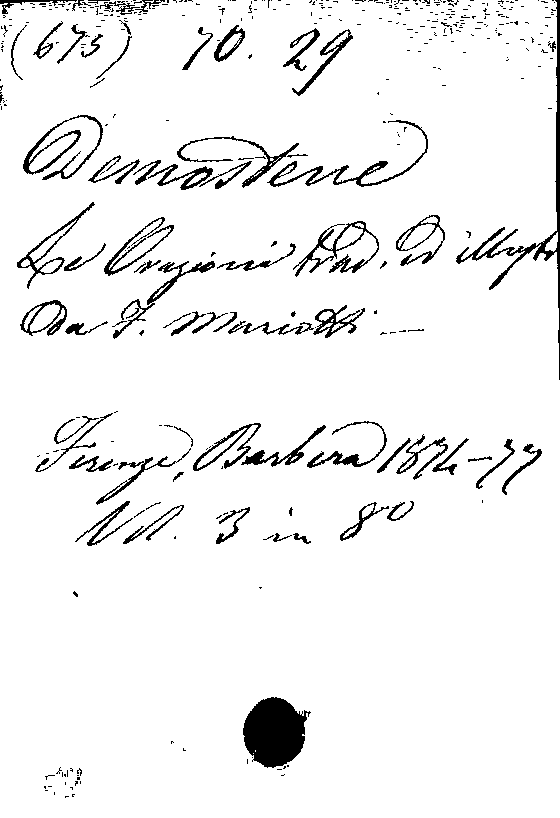 (673) 70. 29
Demostene
Le Orazioni trad. ed illustr
Da F. Mariotti —
Firenze, Barbera 1874-77
Vol. 3 in 8º